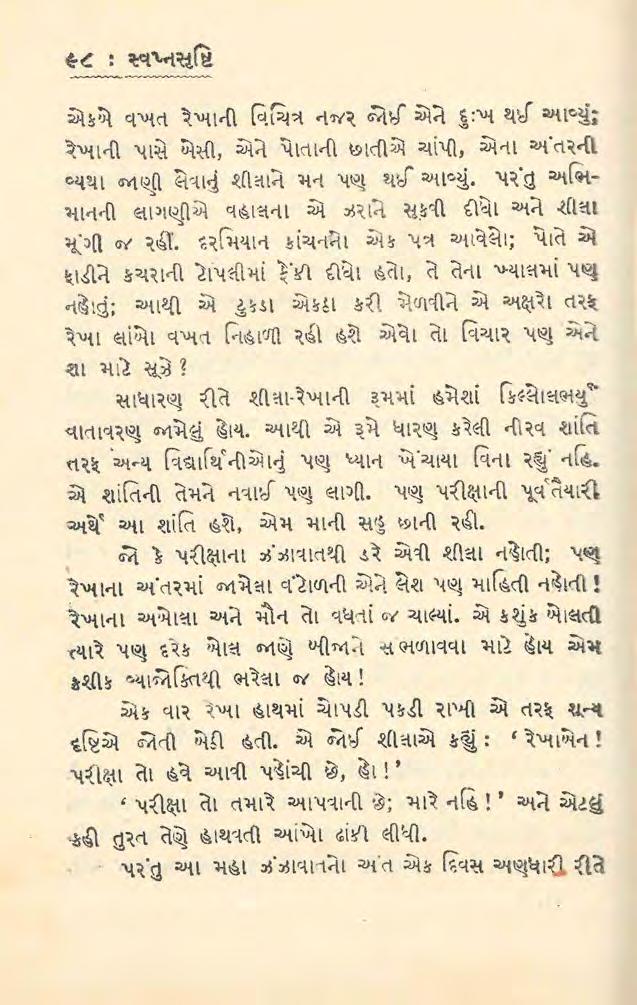 ૯૮ : સ્વપ્નસૃષ્ટિ
એકબે વખત રેખાની વિચિત્ર નજર જોઈ એને દુઃખ થઈ આવ્યું;
રેખાની પાસે બેસી, એને પોતાની છાતીએ ચાંપી, એના અંતરની
વ્યથા જાણી લેવાનું શીલાને મન પણ થઈ આવ્યું. પરંતુ અભિ-
માનની લાગણીએ વહાલના એ ઝરાને સુકવી દીધો અને શીલા
મૂંગી જ રહી. દરમિયાન કાંચનનો એક પત્ર આવેલો; પોતે એ
ફાડીને કચરાની ટોપલીમાં ફેંકી દીધો હતો, તે તેના ખ્યાલમાં પણ
નહોતું; આથી એ ટુકડા એકઠા કરી મેળવીને એ અક્ષરો તરફ
રેખા લાંબો વખત નિહાળી રહી હશે એવો તો વિચાર પણ એને
શા માટે સૂઝે ?
સાધારણ રીતે શીલા-રેખાની રૂમમાં હમેશાં કિલ્લોલભર્યું
વાતાવરણ જામેલું હોય. આથી એ રૂમે ધારણ કરેલી નીરવ શાંતિ
તરફ અન્ય વિદ્યાર્થિનીઓનું પણ ધ્યાન ખેંચાયા વિના રહ્યું નહિ.
એ શાંતિની તેમને નવાઈ પણ લાગી. પણ પરીક્ષાની પૂર્વતૈયારી
અર્થે આ શાંતિ હશે, એમ માની સહુ છાની રહી.
જો કે પરીક્ષાના ઝંઝાવાતથી ડરે એવી શીલા નહોતી; પણ
રેખાના અંતરમાં જામેલા વંટોળની એને લેશ પણ માહિતી નહોતી !
રેખાના અબોલા અને મૌન તો વધતાં જ ચાલ્યાં. એ કશુંક બોલતી
ત્યારે પણ દરેક બોલ જાણે બીજાને સંભળાવવા માટે હોય એમ
કશીક વ્યાજોક્તિથી ભરેલા જ હોય !
એક વાર રેખા હાથમાં ચોપડી પકડી રાખી એ તરફ શૂન્ય
દૃષ્ટિએ જોતી બેઠી હતી. એ જોઈ શીલાએ કહ્યું : ‘ રેખાબેન !
પરીક્ષા તો હવે આવી પહોંચી છે, હો !’
‘ પરીક્ષા તો તમારે આપવાની છે; મારે નહિ ! ’ અને એટલું
કહી તુરત તેણે હાથવતી આંખો ઢાંકી લીધી.
પરંતુ આ મહા ઝંઝાવાતનો અંત એક દિવસ અણધારી રીતે